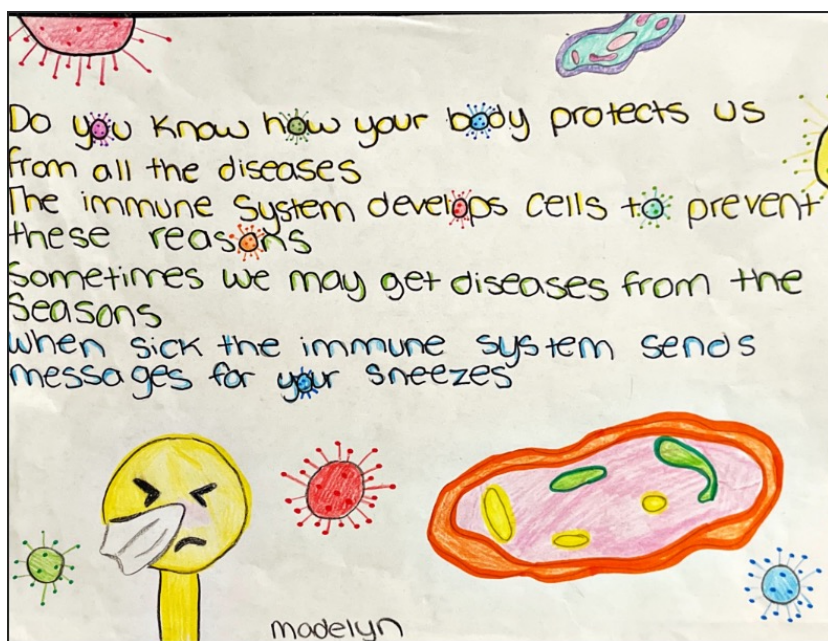 Do you know how your body protects us
from all the diseases
The immune system develops cells to prevent
these reasons
Sometimes we may get diseases from the
Seasons
When sick the immune system sends
messages for your sneezes
madelyn